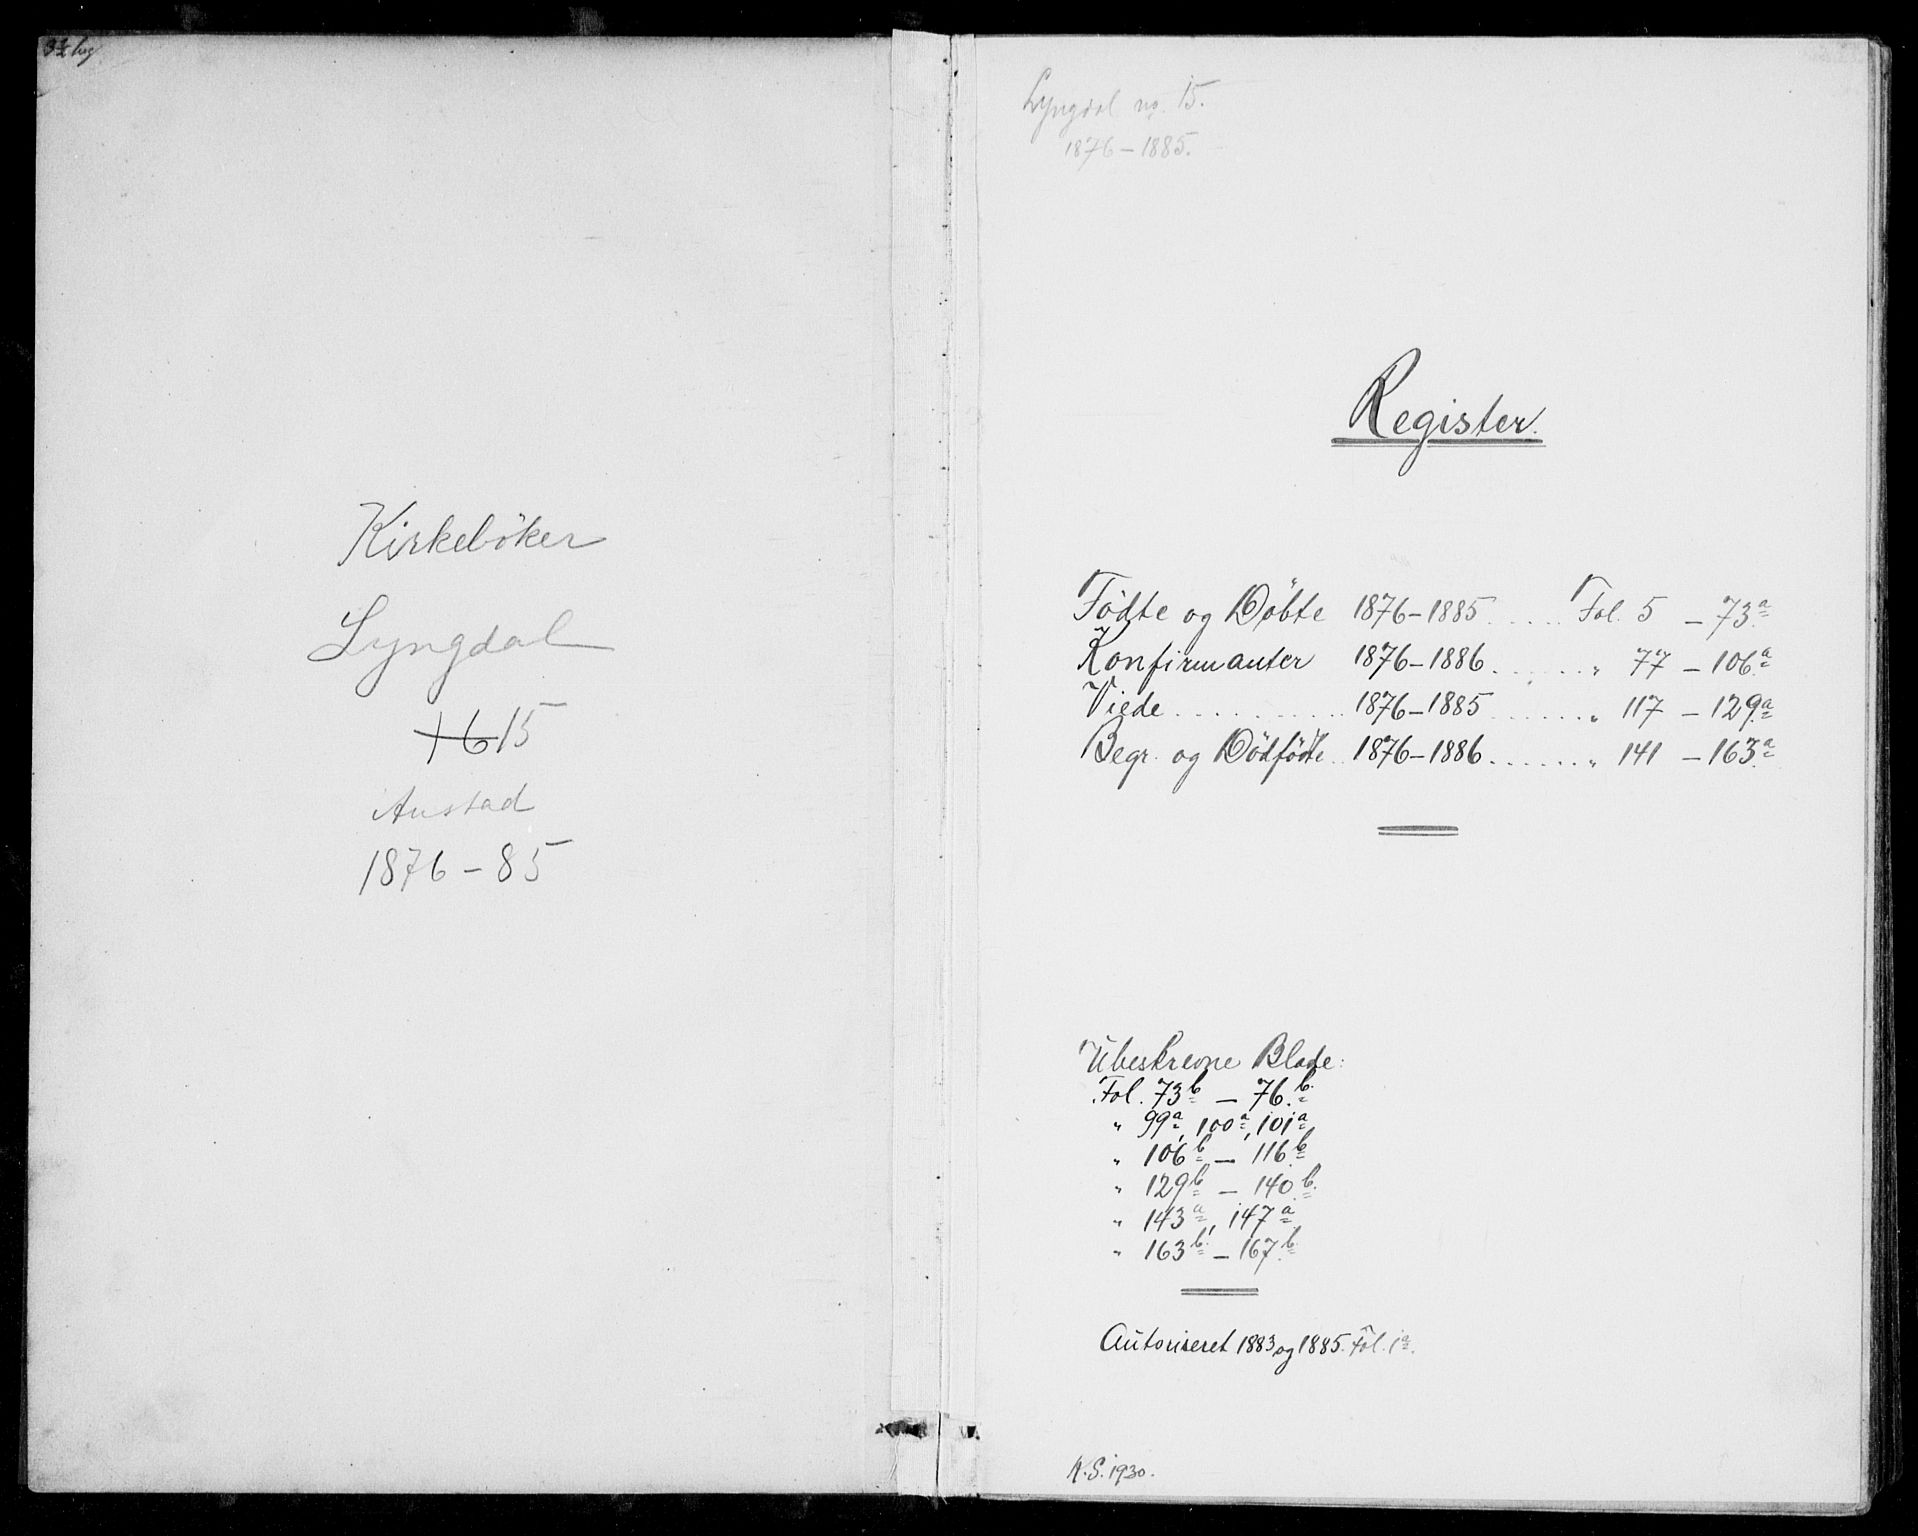 Kirkebøker
Lyngdal
16 15
Austad
1876-85
Lyngdal no. 15.
1876-1885.
Register.
Födte og Döbte 1876-1885 ..... Fol. 5 - 73a
Konfirmanter 1876-1886 ..... " 77 - 106a
Viede .......... 1876-1885 ...... " 117 - 129a
Begr. og Dödfödte .. 1876-1886 ...... " 141 - 163a
Ubeskrevne Blade:
Fol. 73b - 76b.
" 99a, 100a, 101a
" 106b - 116b
" 129b - 140b.
" 143a, 147a
" 163b - 167b
Autoriseret 1883 og 1885. Fol. 1a.
K.S. 1930.